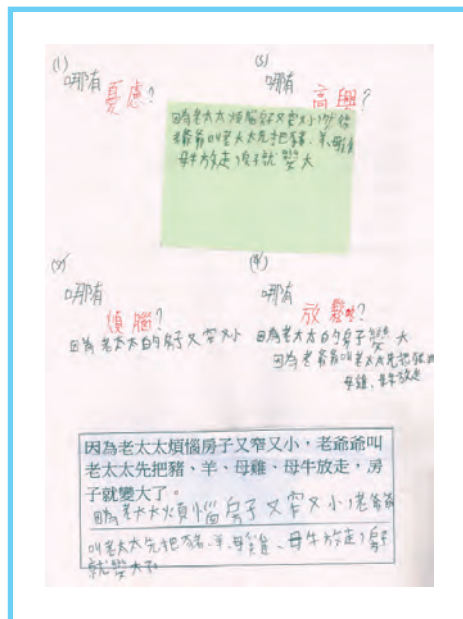 (1)
哪有
憂慮?
(3)
哪有
高興?
因為老太太煩腦房子又窄又小,
老爺爺叫老太太先把豬、羊、母雞
母牛放走,房子就變大
(2)
哪有
煩腦?
因為老太太的房子又窄又小
(4)
哪有
放鬆?
因為老太太的房子變大
因為老爺爺叫老太太先把豬
母雞、母牛放走
因為老太太煩惱房子又窄又小,老爺爺叫
老太太先把豬、羊、母雞、母牛放走,房
子就變大了。
因為老太太煩惱房子又窄又小,老爺爺
叫老太太先把豬、羊、母雞、母牛放走,房子
就變大了